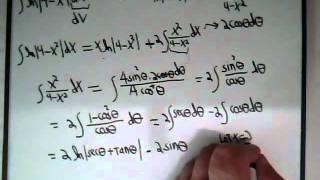 ∫ln|4-x²|dx
dv
4-x²
∫ln|4-x²|dx = xln|4-x²| + 2∫x²/(4-x²) dx → 2cosθdθ
∫x²/(4-x²) dx = ∫(4sin²θ·2cosθdθ)/(4cos²θ) = 2∫sin²θ/cosθ dθ
= 2∫(1-cos²θ)/cosθ dθ = 2∫secθdθ - 2∫cosθdθ
= 2 ln|secθ+tanθ| - 2sinθ